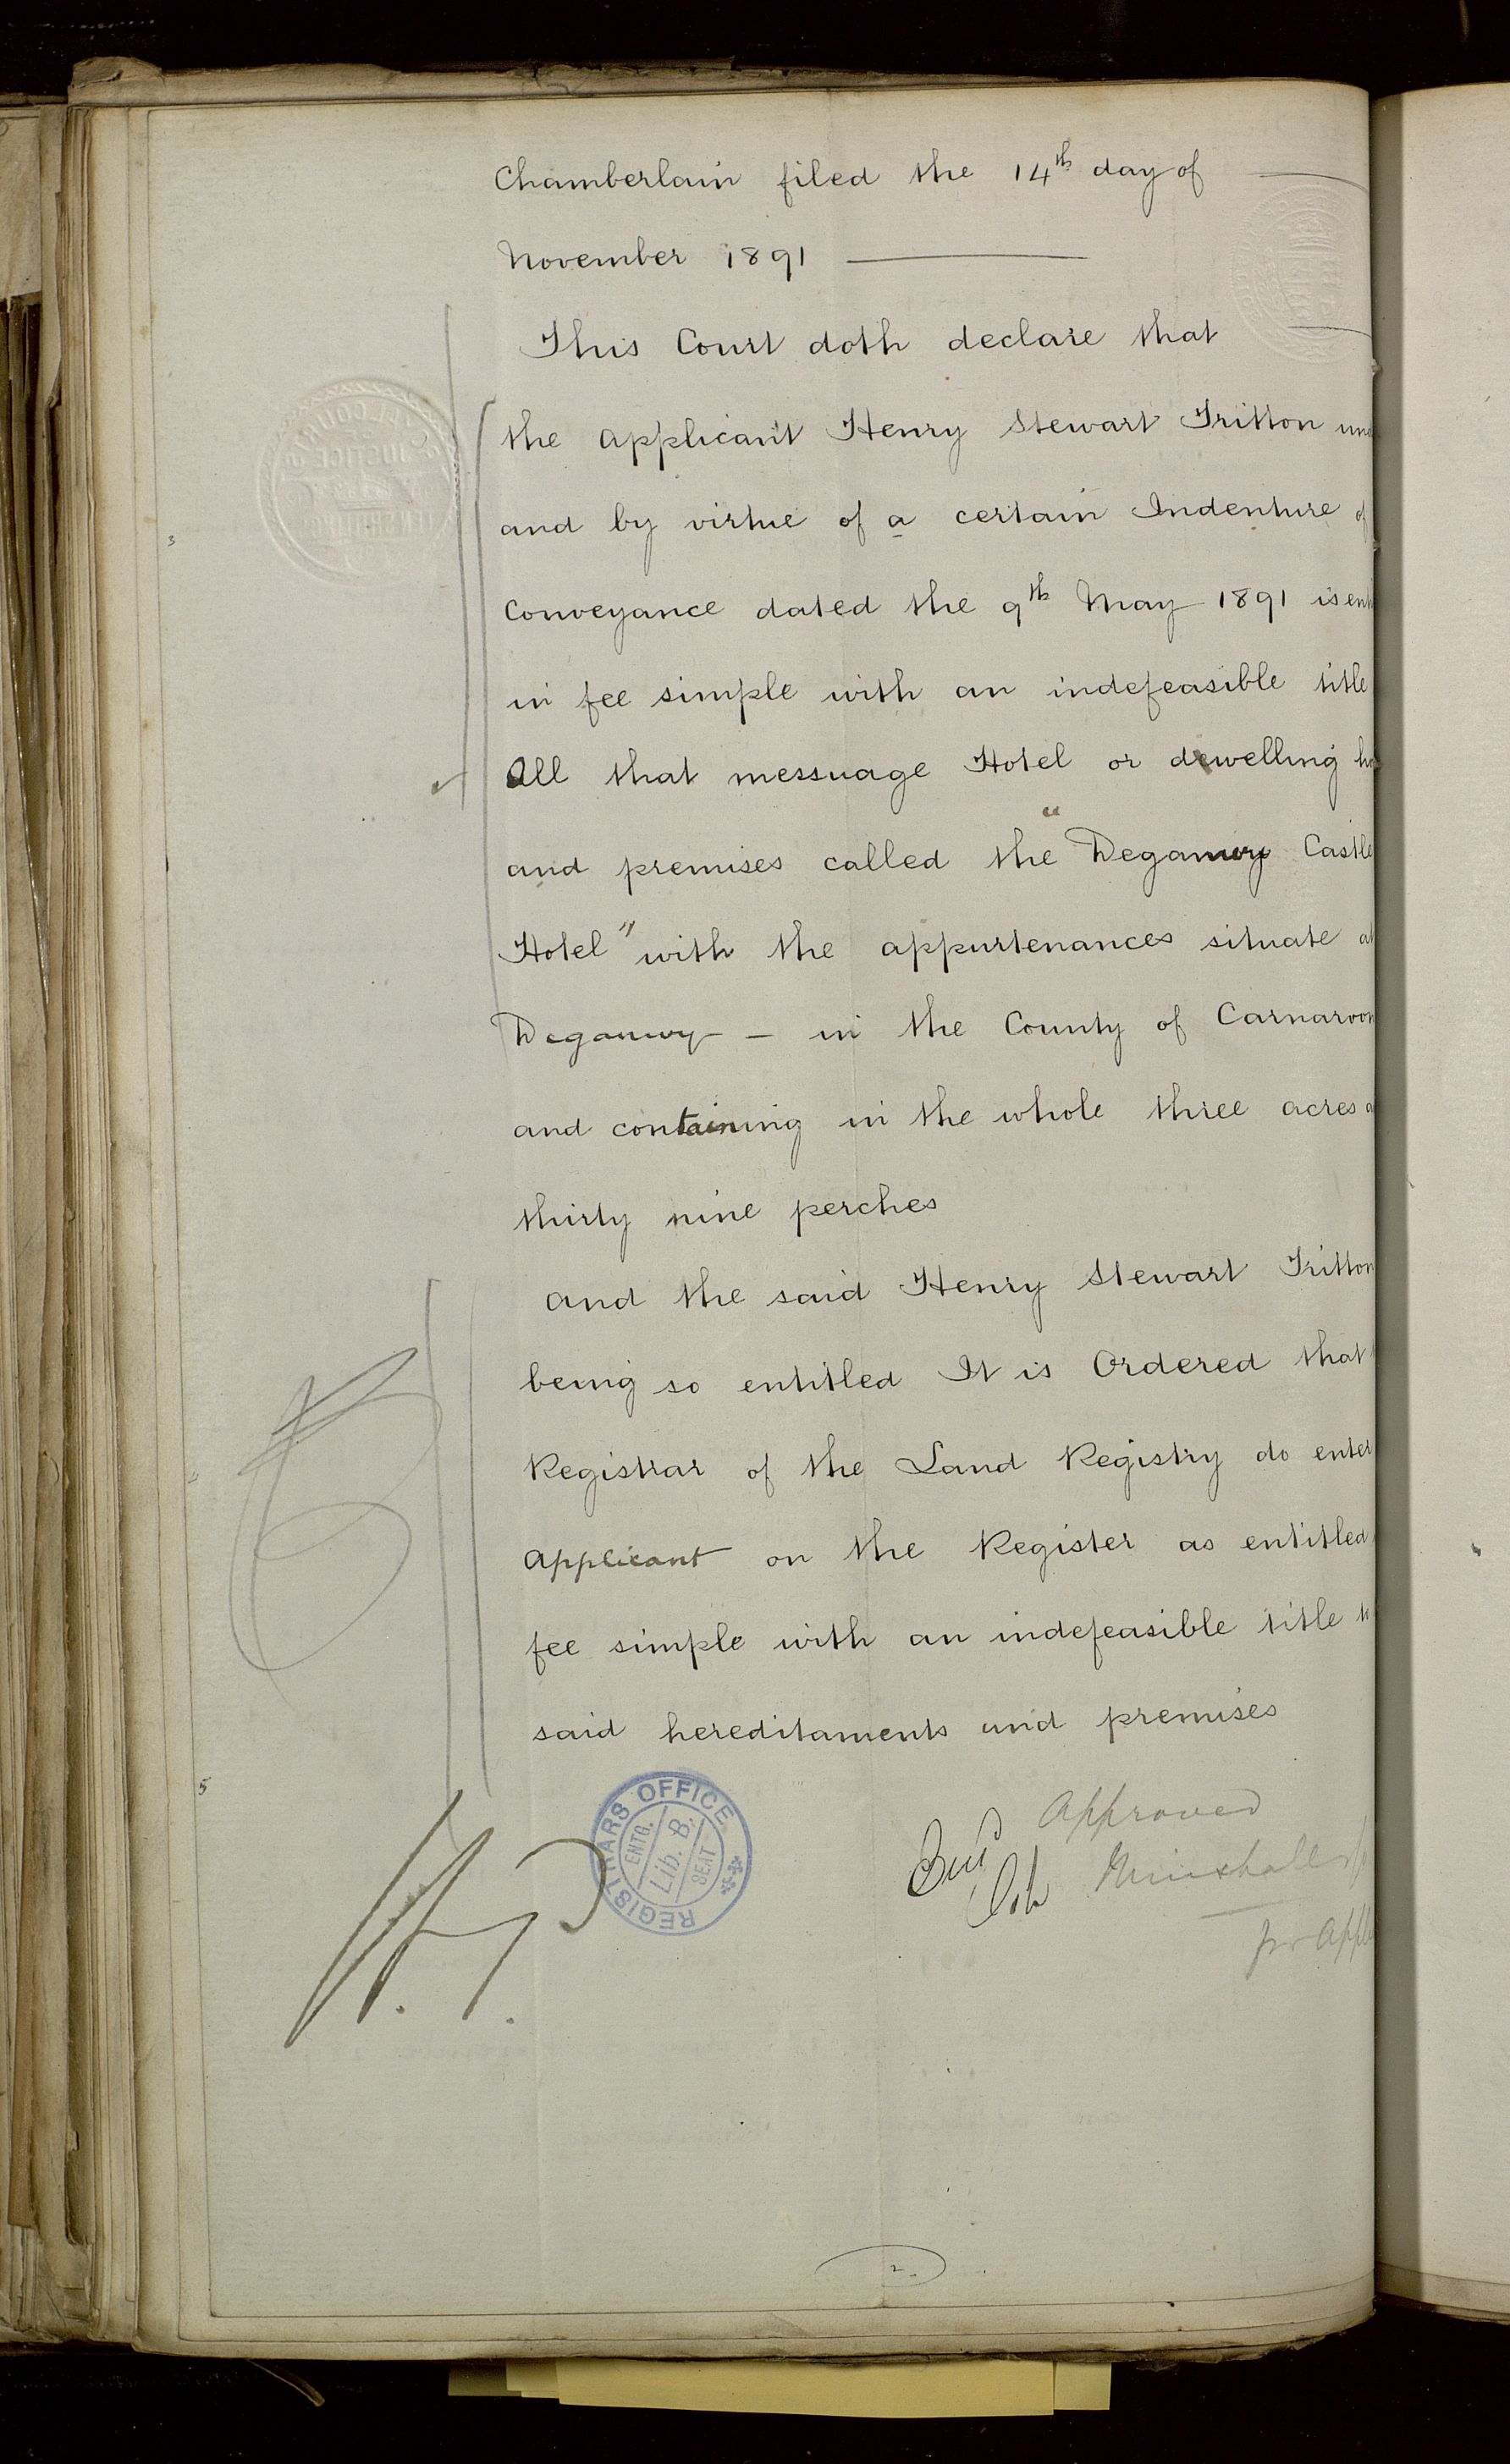 Chamberlain filed the 14th day of
November 1891
This Court doth declare that
the applicant Henry Stewart Tritton
and by virtue of a certain Indenture of
Conveyance dated the 9th May 1891 is
in fee simple with an indefeasible title
All that messuage Hotel or dwelling
and premises called the "Deganwy Castle
Hotel" with the appurtenances situate at
Deganwy — in the County of Carnarvon
and containing in the whole three acres
thirty nine perches
And the said Henry Stewart Tritton
being so entitled It is Ordered that
Registrar of the Land Registry do enter
applicant on the Register as entitled
fee simple with an indefeasible title
said hereditaments and premises
REGISTRARS OFFICE
ENTG.
Lib. B.
SEAT
Approved
for
2.
3
5